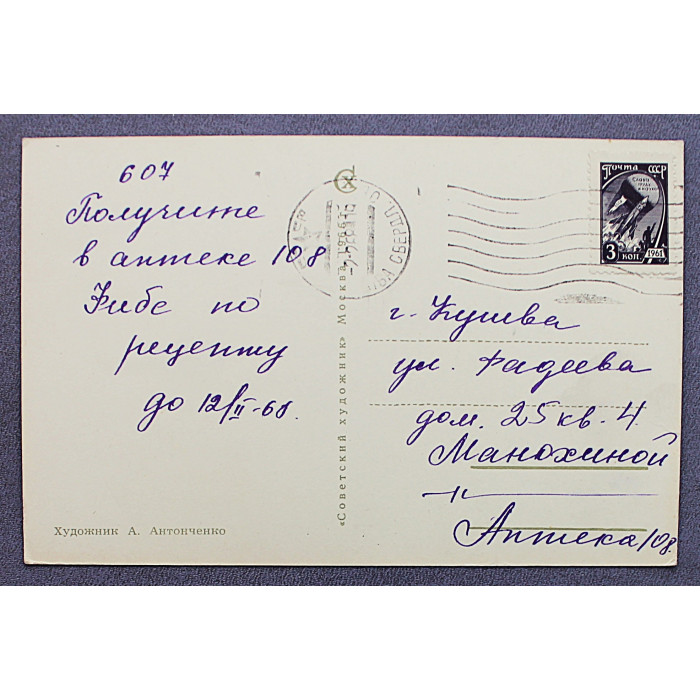 607
Получите
в аптеке 108
по
рецепту
до 12/II-68.
Художник А. Антонченко
«Советский художник» Москва
ПОЧТА СССР
СЛАВА
ТРУДУ
3 КОП. 1961
г. Кушва
ул. Фадеева
дом. 25 кв. 4
Манохиной
Аптека 108.